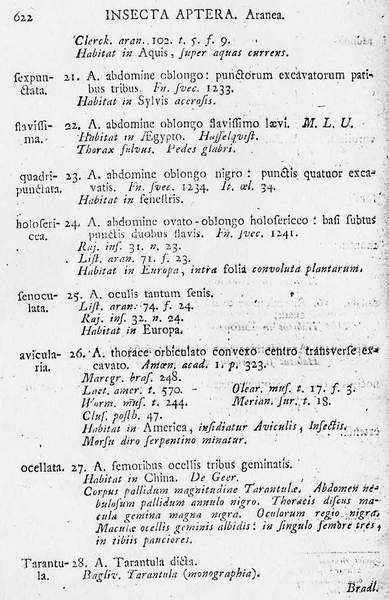 622 INSECTA APTERA. Aranea.
Clerck. aran. 102. t. 5. f. 9.
Habitat in Aquis, ſuper aquas currens.
ſexpun- 21. A. abdomine oblongo: punctorum excavatorum pari-
ctata. bus tribus. Fn. ſvec. 1233.
Habitat in Sylvis aceroſis.
flaviſſi- 22. A. abdomine oblongo flaviſſimo lævi. M. L. U.
ma. Habitat in Ægypto. Haſſelqviſt.
Thorax fulvus. Pedes glabri.
quadri- 23. A. abdomine oblongo nigro: punctis quatuor exca-
punctata. vatis. Fn. ſvec. 1234. It. œl. 34.
Habitat in feneſtris.
holoſeri- 24. A. abdomine ovato-oblongo holoſericeo: baſi ſubtus
cea. punctis duobus flavis. Fn. ſvec. 1241.
Raj. inſ. 31. n. 23.
Liſt. aran. 71. f. 23.
Habitat in Europa, intra folia convoluta plantarum.
ſenocu- 25. A. oculis tantum ſenis.
lata. Liſt. aran. 74. f. 24.
Raj. inſ. 32. n. 24.
Habitat in Europa.
avicula- 26. A. thorace orbiculato convexo centro transverſe ex-
ria. cavato. Amœn. acad. 1. p. 323.
Maregr. braſ. 248.
Laet. amer. t. 570. Olear. muſ. t. 17. f. 3.
Worm. muſ. t. 244. Merian. ſur. t. 18.
Cluſ. poſth. 47.
Habitat in America, inſidiatur Aviculis, Inſectis.
Morſu diro ſerpentino minatur.
ocellata. 27. A. femoribus ocellis tribus geminatis.
Habitat in China. De Geer.
Corpus pallidum magnitudine Tarantulæ. Abdomen ne-
buloſum pallidum annulo nigro. Thoracis diſcus ma-
cula gemina magna nigra. Oculorum regio nigra.
Maculæ ocellis geminis albidis: in ſingulo femore tres,
in tibiis pauciores.
Tarantu- 28. A. Tarantula dicta.
la. Bagliv. Tarantula (monographia).
Bradl.